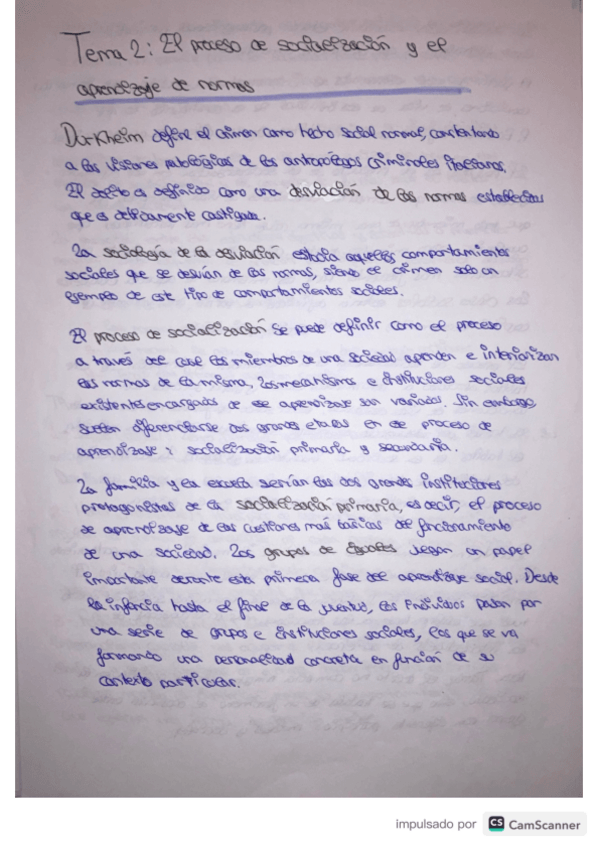 Tema 2: El proceso de socialización y el
aprendizaje de normas
Durkheim define el crimen como hecho social normal, contestando
a las visiones patológicas de los antropólogos criminales italianos.
El delito es definido como una desviación de las normas establecidas
que es debidamente castigada.
La sociología de la desviación estudia aquellos comportamientos
sociales que se desvían de las normas, siendo el crimen solo un
ejemplo de este tipo de comportamientos sociales.
El proceso de socialización se puede definir como el proceso
a través del cual los miembros de una sociedad aprenden e interiorizan
las normas de la misma. Los mecanismos e instituciones sociales
existentes encargados de ese aprendizaje son variados. Sin embargo,
suelen diferenciarse dos grandes etapas en ese proceso de
aprendizaje: socialización primaria y secundaria.
La familia y la escuela serían las dos grandes instituciones
protagonistas de la socialización primaria, es decir, el proceso
de aprendizaje de las cuestiones más básicas del funcionamiento
de una sociedad. Los grupos de iguales juegan un papel
importante durante esta primera fase del aprendizaje social. Desde
la infancia hasta el final de la juventud, los individuos pasan por
una serie de grupos e instituciones sociales, los que se va
formando una personalidad concreta en función de su
contexto particular.
impulsado por CS CamScanner